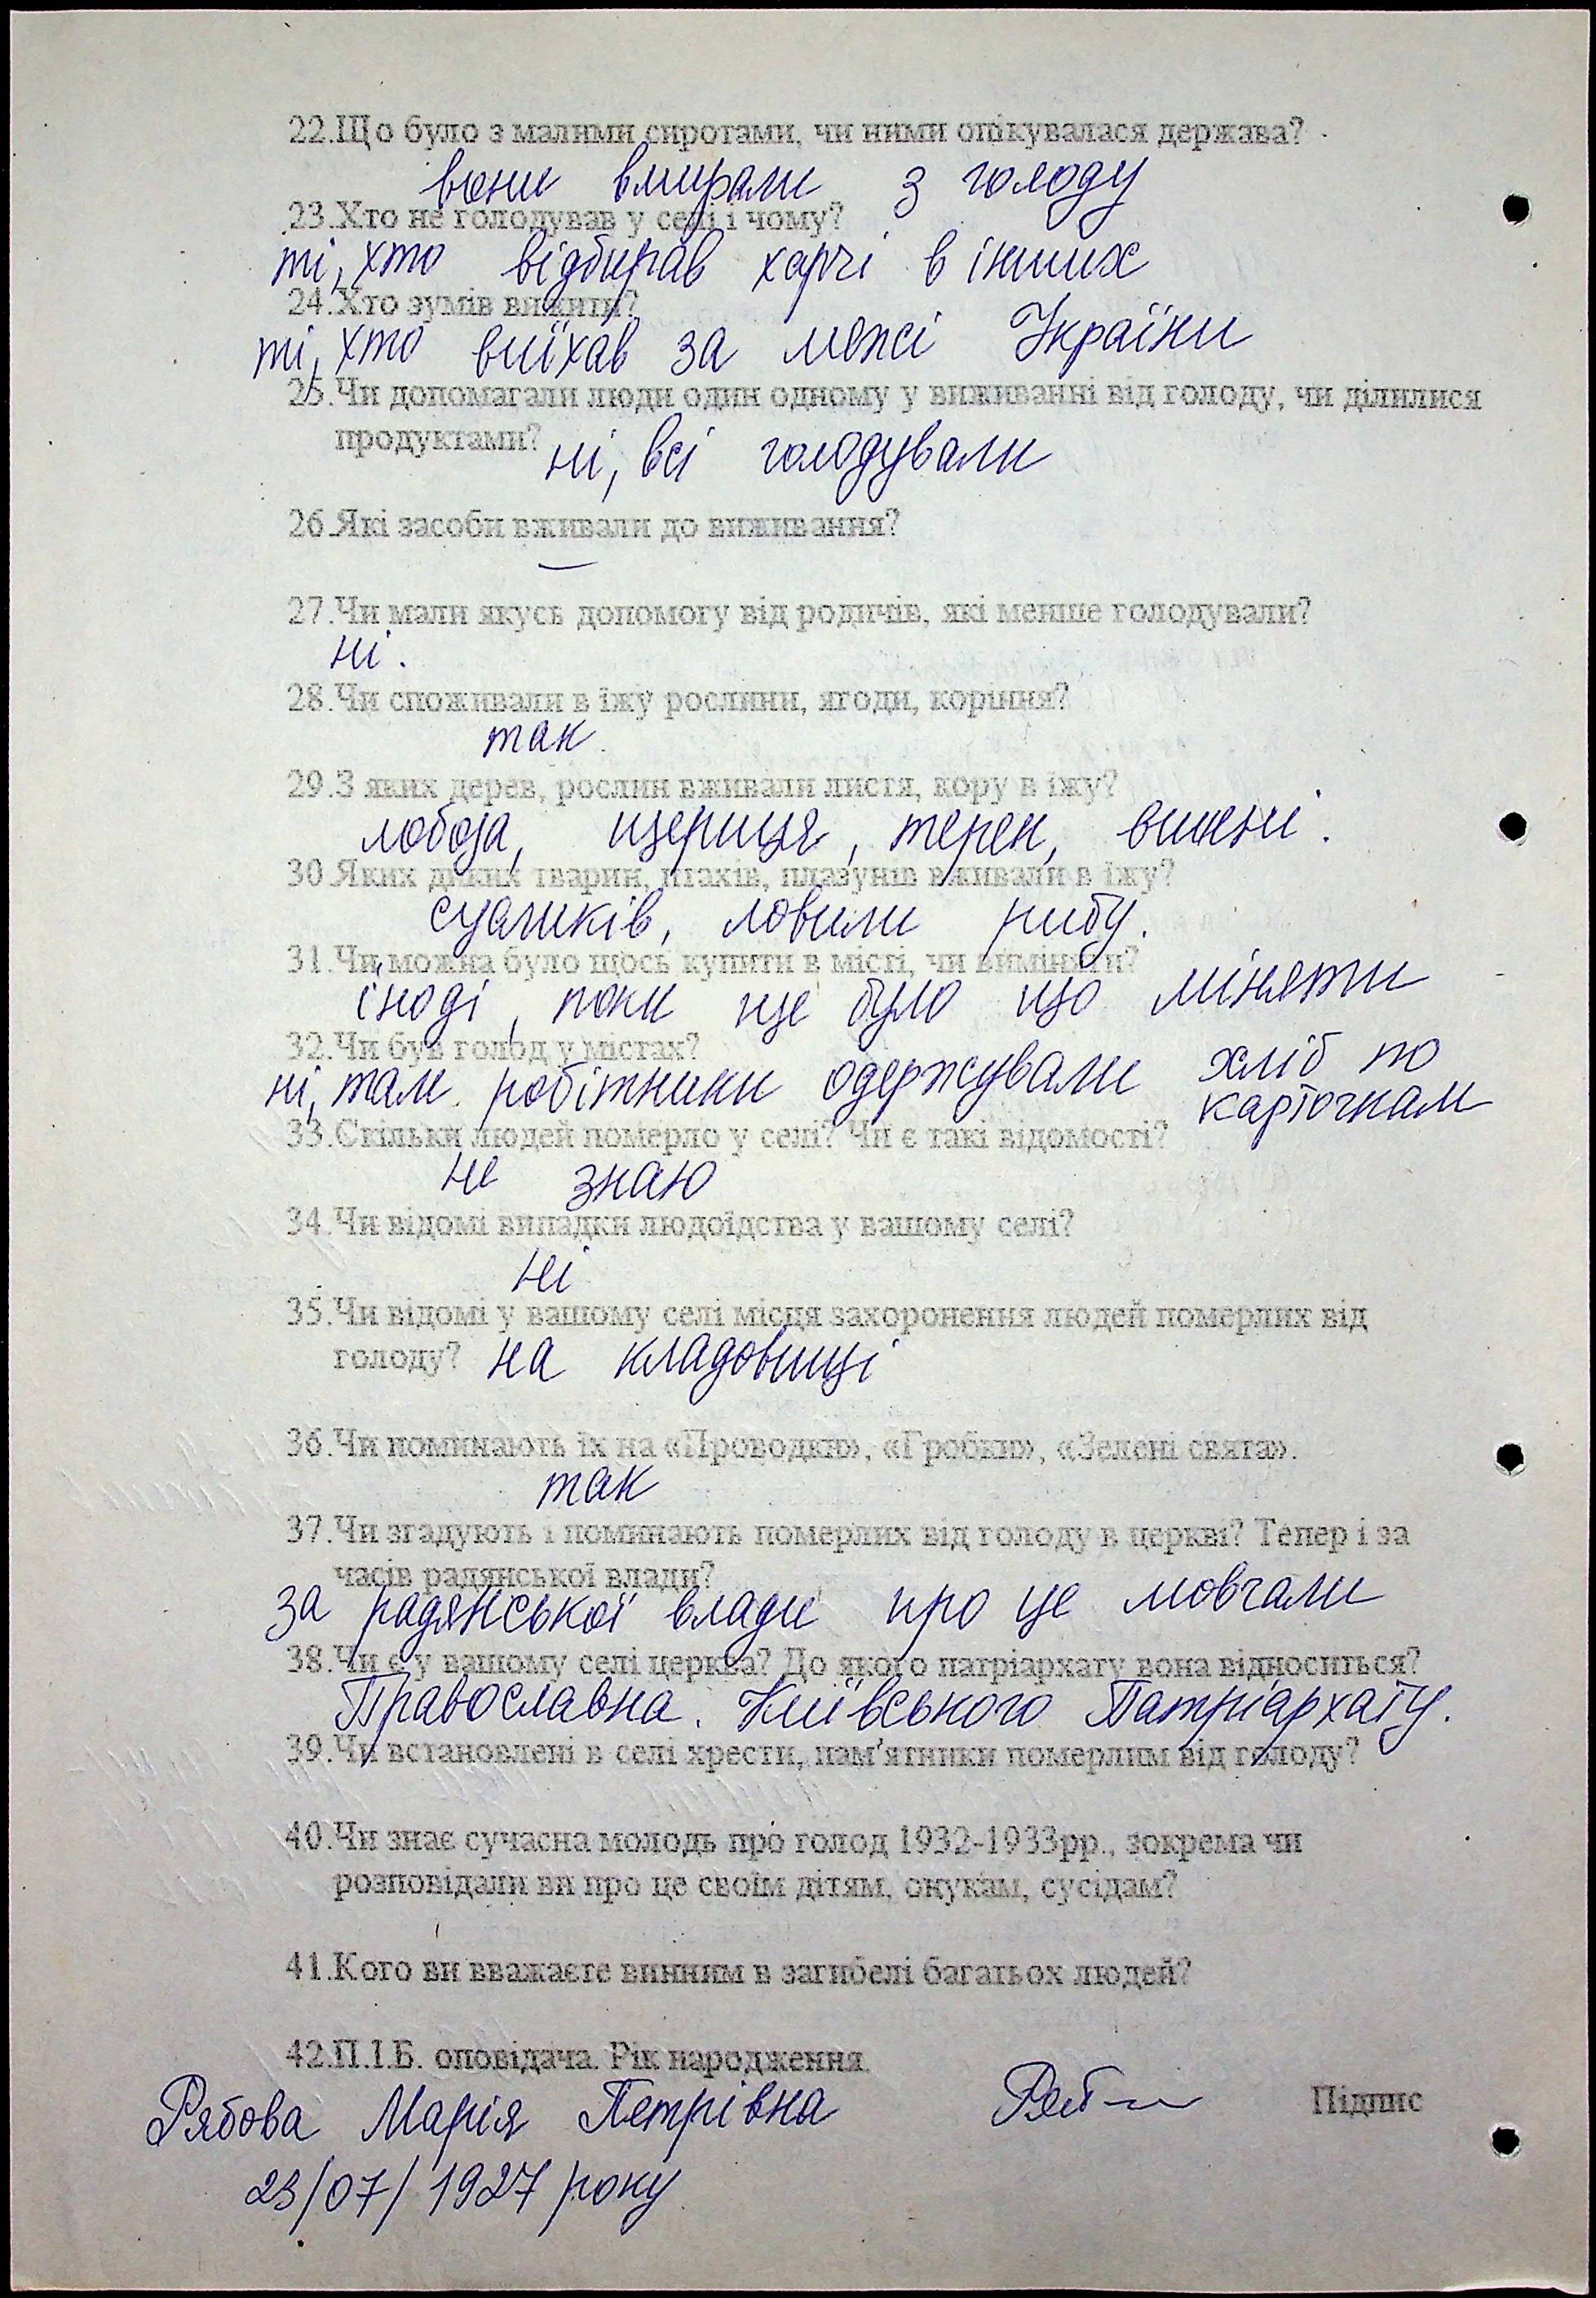 22.Що було з малими сиротами, чи ними опікувалася держава?
вони вмирали з голоду
23.Хто не голодував у селі і чому?
ті, хто відбирав харчі в інших
24.Хто зумів вижити?
ті, хто виїхав за межі України
25.Чи допомагали люди один одному у виживанні від голоду, чи ділилися
продуктами? ні, всі голодували
26.Які засоби вживали до виживання?
—
27.Чи мали якусь допомогу від родичів, які менше голодували?
ні.
28.Чи споживали в їжу рослини, ягоди, коріння?
так.
29.З яких дерев, рослин вживали листя, кору в їжу?
лобода, щериця, терен, вишні.
30.Яких диких тварин, птахів, плазунів вживали в їжу?
сусликів, ловили рибу.
31.Чи можна було щось купити в місті, чи виміняти?
іноді, поки ще було що міняти
32.Чи був голод у містах?
ні, там робітники одержували хліб по
карточкам
33.Скільки людей померло у селі? Чи є такі відомості?
не знаю
34.Чи відомі випадки людоїдства у вашому селі?
ні
35.Чи відомі у вашому селі місця захоронення людей померлих від
голоду? на кладовищі
36.Чи поминають їх на «Проводки», «Гробки», «Зелені свята».
так
37.Чи згадують і поминають померлих від голоду в церкві? Тепер і за
часів радянської влади?
за радянської влади про це мовчали
38.Чи є у вашому селі церква? До якого патріархату вона відноситься?
Православна. Київського Патріархату.
39.Чи встановлені в селі хрести, пам'ятники померлим від голоду?
40.Чи знає сучасна молодь про голод 1932-1933рр., зокрема чи
розповідали ви про це своїм дітям, онукам, сусідам?
41.Кого ви вважаєте винним в загибелі багатьох людей?
42.П.І.Б. оповідача. Рік народження.
Рябова Марія Петрівна Підпис
23/07/1927 року